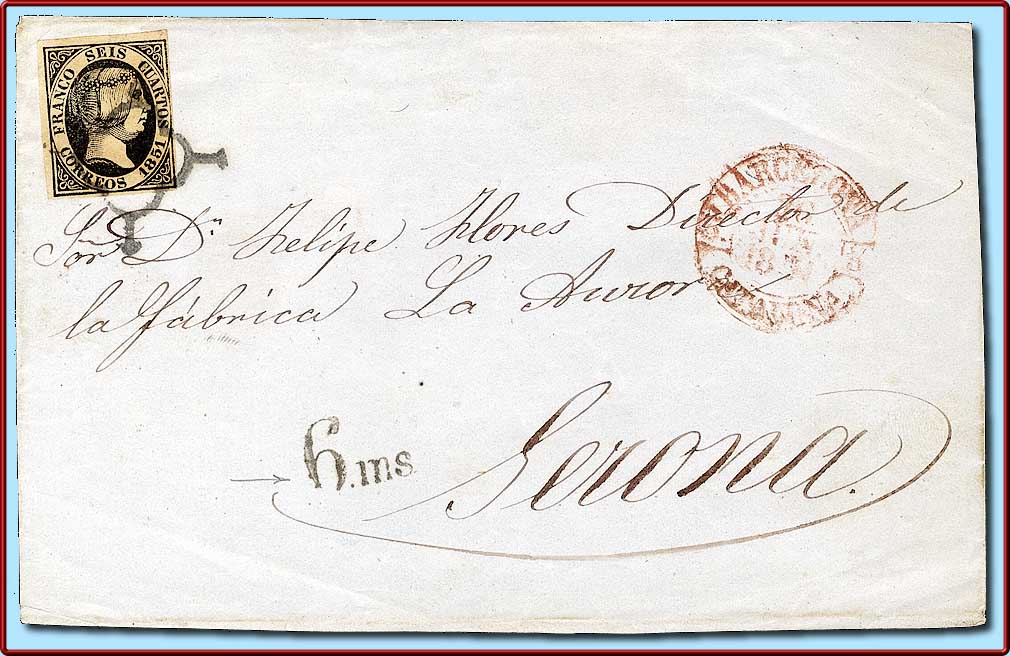 FRANCO SEIS CUARTOS
CORREOS 1851
Sõr Dn. Felipe Flores Director de
la fábrica La Auror
6.ms
Gerona.